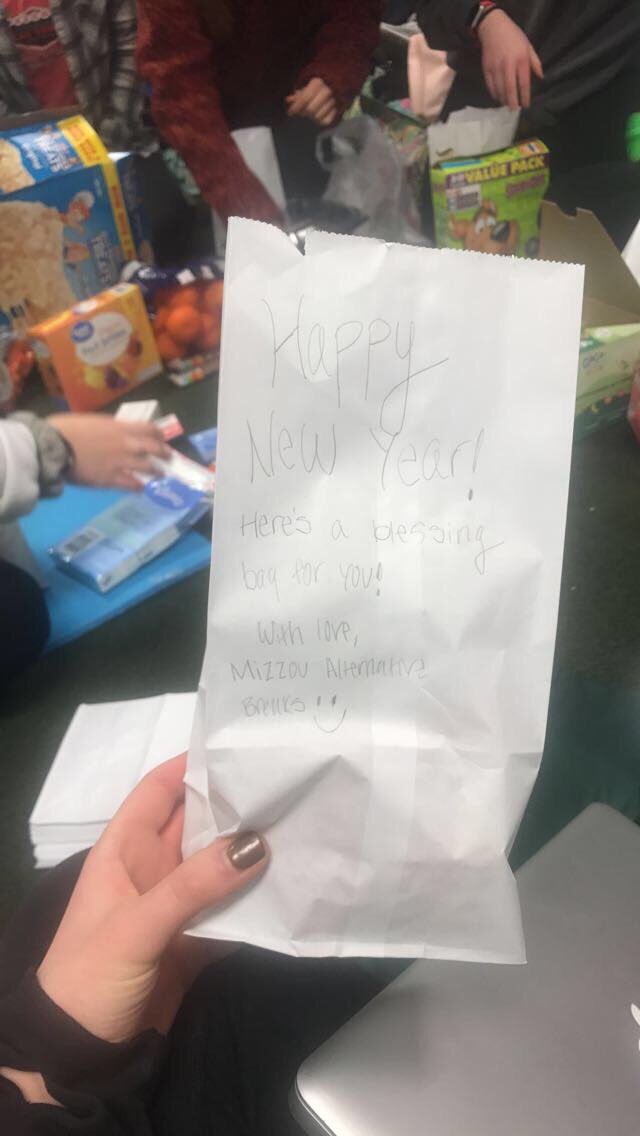 VALUE PACK
Happy
New Year!
Here's a blessing
bag for you!
With love,
Mizzou Alternative
Breaks